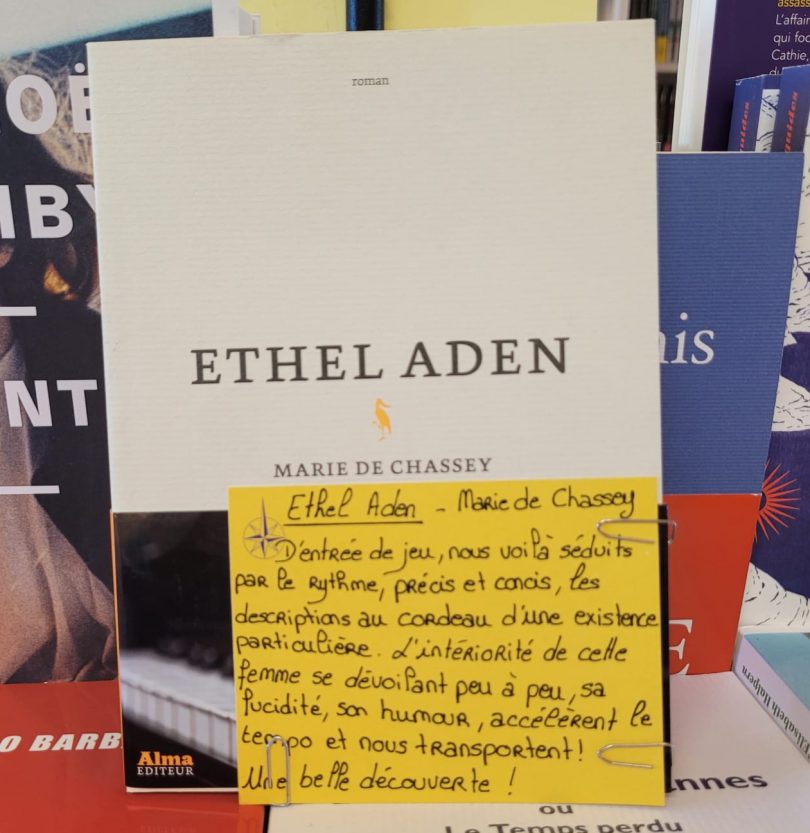 roman
ETHEL ADEN
MARIE DE CHASSEY
Ethel Aden - Marie de Chassey
D'entrée de jeu, nous voilà séduits
par le rythme, précis et concis, les
descriptions au cordeau d'une existence
particulière. L'intériorité de cette
femme se dévoilant peu à peu, sa
lucidité, son humour, accélèrent le
tempo et nous transportent!
Une belle découverte !
Alma
EDITEUR
O BARB
NT
assass
L'affair
qui foc
Cathie,
du
guides
guides
nis
E
Elisabeth Halpern
nnes
ou
Le Temps perdu